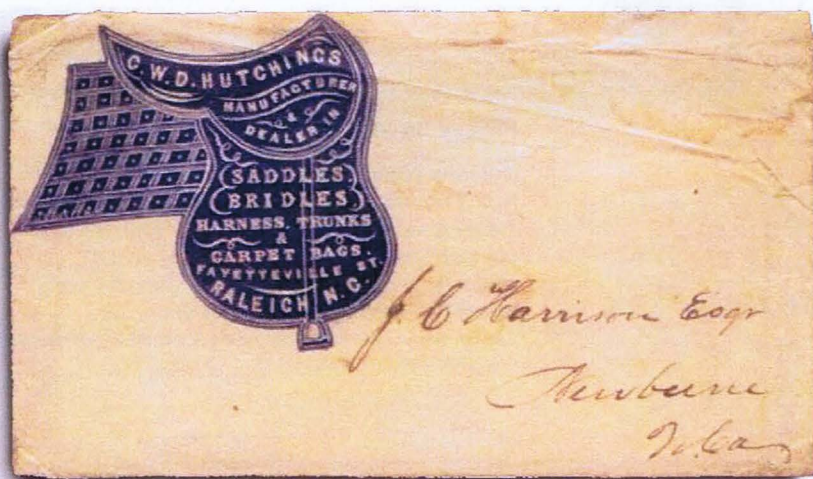 C.W.D. HUTCHINGS
MANUFACTURER
&
DEALER IN
SADDLES
BRIDLES
HARNESS, TRUNKS
&
CARPET BAGS.
FAYETTEVILLE ST.
RALEIGH N.C.
J. C Harrison Esqr
Newberne
N. Ca